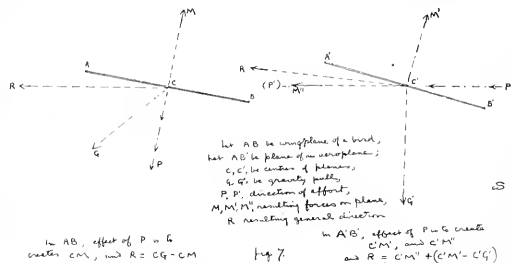 M
A
C
R
B
G
P
M'
A'
R
(P')
M"
C'
P
B'
G'
Let AB be wing plane of a bird,
Let AB' be plane of an aeroplane;
C, C', be centres of planes,
G, G', be gravity pulls,
P, P', direction of effort,
M, M', M", resulting forces on plane,
R resulting general direction
In AB, effect of P is to
create CM, and R = CG - CM
fig 7.
In A'B', effect of P is to create
C'M', and C'M"
and R = C'M" + (C'M' - C'G')
S